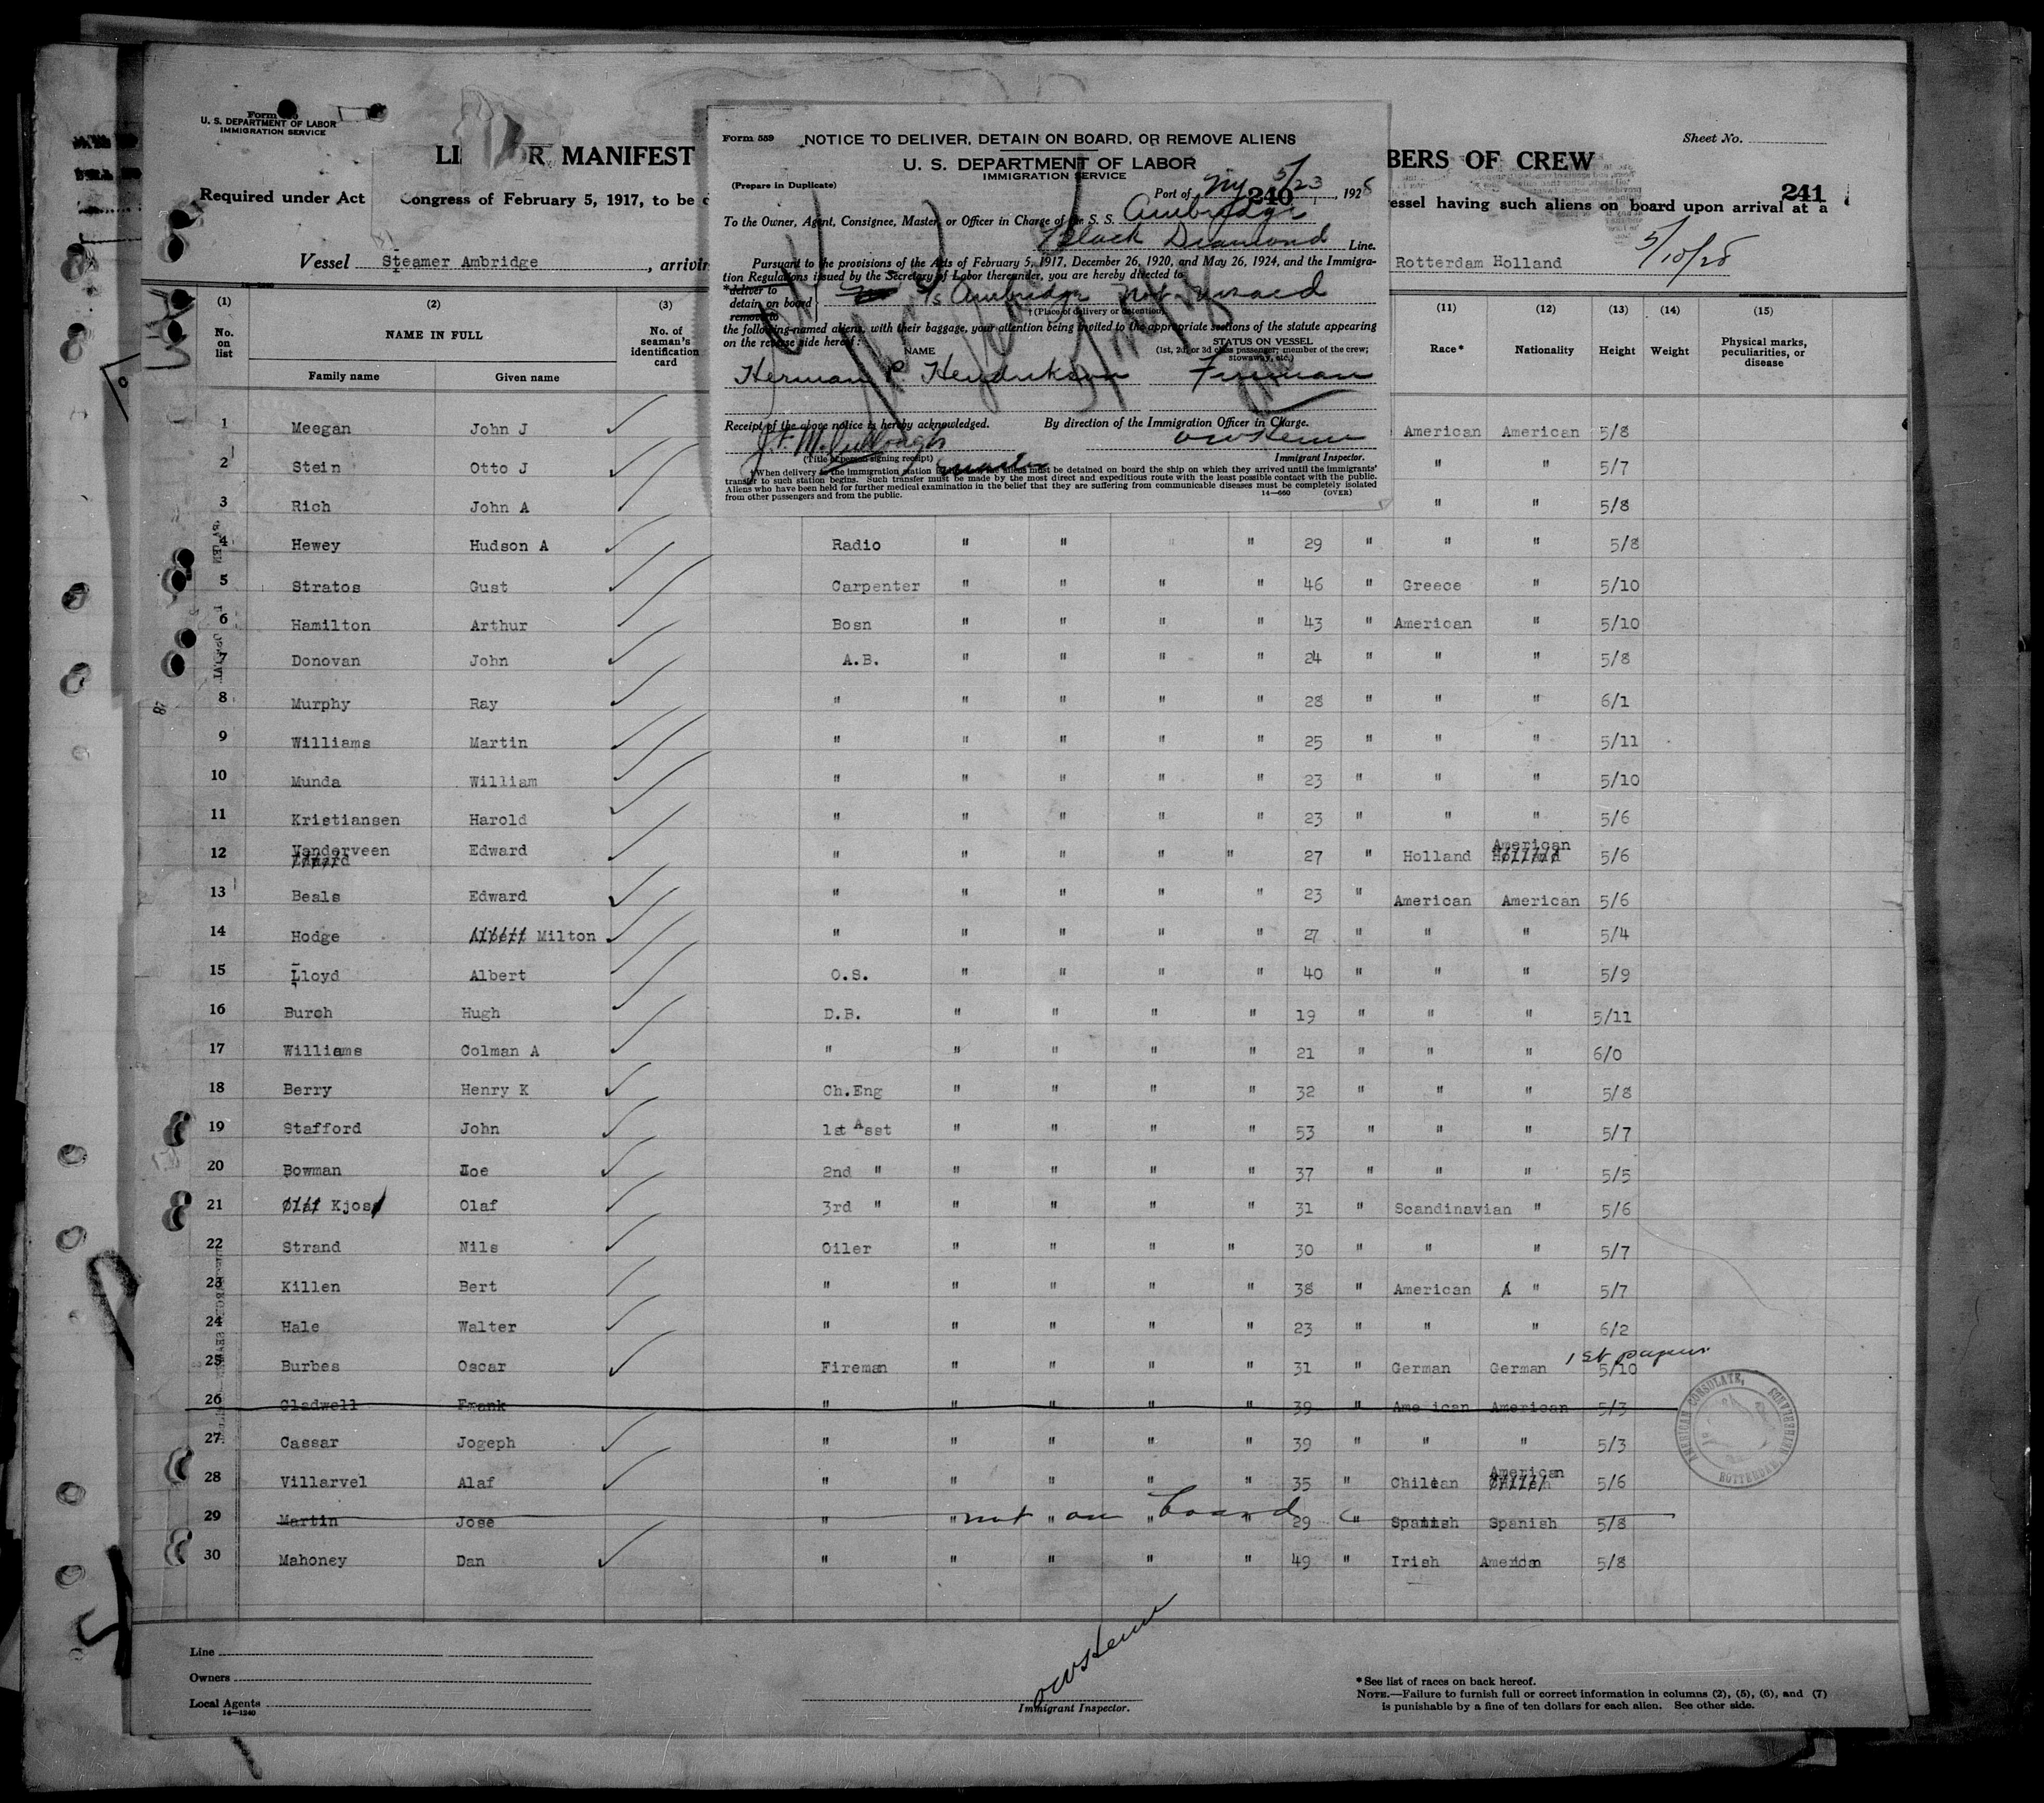 Form
U. S. DEPARTMENT OF LABOR
IMMIGRATION SERVICE
Sheet No.
LI R MANIFEST
BERS OF CREW
241
Required under Act Congress of February 5, 1917, to be d
essel having such aliens on board upon arrival at a
Vessel Steamer Ambridge, arrivin
Rotterdam Holland 5/10/28
Form 559 NOTICE TO DELIVER, DETAIN ON BOARD, OR REMOVE ALIENS
U. S. DEPARTMENT OF LABOR
IMMIGRATION SERVICE
(Prepare in Duplicate)
Port of NY 5/23, 1928
240
To the Owner, Agent, Consignee, Master, or Officer in Charge of the S. S. Ambridge
Black Diamond Line.
Pursuant to the provisions of the Acts of February 5, 1917, December 26, 1920, and May 26, 1924, and the Immigra-
tion Regulations issued by the Secretary of Labor thereunder, you are hereby directed to
*deliver to
detain on board S/S Ambridge Not visaed
remove to
†(Place of delivery or detention)
the following-named aliens, with their baggage, your attention being invited to the appropriate sections of the statute appearing
on the reverse side hereof:
NAME STATUS ON VESSEL
(1st, 2d, or 3d class passenger; member of the crew;
stowaway, etc.)
Herman P. Hendrikson Fireman
Receipt of the above notice is hereby acknowledged. By direction of the Immigration Officer in Charge.
J F McCullough
(Title of person signing receipt) master Immigrant Inspector.
†When delivery to the immigration station is directed the aliens must be detained on board the ship on which they arrived until the immigrants'
transfer to such station begins. Such transfer must be made by the most direct and expeditious route with the least possible contact with the public.
Aliens who have been held for further medical examination in the belief that they are suffering from communicable diseases must be completely isolated
from other passengers and from the public. 14—660 (OVER)
(1) (2) (3) (11) (12) (13) (14) (15)
No. on list NAME IN FULL No. of seaman's identification card Race* Nationality Height Weight Physical marks, peculiarities, or disease
Family name Given name
1 Meegan John J American American 5/8
2 Stein Otto J " " 5/7
3 Rich John A " " 5/8
4 Hewey Hudson A Radio " " " " 29 " " " 5/8
5 Stratos Gust Carpenter " " " " 46 " Greece " 5/10
6 Hamilton Arthur Bosn " " " " 43 " American " 5/10
7 Donovan John A.B. " " " " 24 " " " 5/8
8 Murphy Ray " " " " " 28 " " " 6/1
9 Williams Martin " " " " " 25 " " " 5/11
10 Munda William " " " " " 23 " " " 5/10
11 Kristiansen Harold " " " " " 23 " " " 5/6
12 Vanderveen Edward " " " " " 27 " Holland American Holland 5/6
13 Beals Edward " " " " " 23 " American American 5/6
14 Hodge Albert Milton " " " " " 27 " " " 5/4
15 Lloyd Albert O.S. " " " " 40 " " " 5/9
16 Burch Hugh D.B. " " " " 19 " " " 5/11
17 Williams Colman A " " " " " 21 " " " 6/0
18 Berry Henry K Ch.Eng " " " " 32 " " " 5/8
19 Stafford John 1st Asst " " " " 53 " " " 5/7
20 Bowman Zoe 2nd " " " " " 37 " " " 5/5
21 Olaf Kjos Olaf 3rd " " " " " 31 " Scandinavian " 5/6
22 Strand Nils Oiler " " " " 30 " " " 5/7
23 Killen Bert " " " " " 38 " American " 5/7
24 Hale Walter " " " " " 23 " " " 6/2
25 Burbes Oscar Fireman " " " " 31 " German German 1st papers 5/10
26 Gladwell Frank " " " " " 39 " American American 5/3
27 Cassar Jogeph " " " " " 39 " " " 5/3
28 Villarvel Alaf " " " " " 35 " Chilean American 5/6
29 Martin Jose " " " " " 29 " Spanish Spanish 5/8
not on board
30 Mahoney Dan " " " " " 49 " Irish American 5/8
AMERICAN CONSULATE, ROTTERDAM, NETHERLANDS
Line
Owners
Local Agents
14—1240
Immigrant Inspector.
*See list of races on back hereof.
NOTE.—Failure to furnish full or correct information in columns (2), (5), (6), and (7)
is punishable by a fine of ten dollars for each alien. See other side.